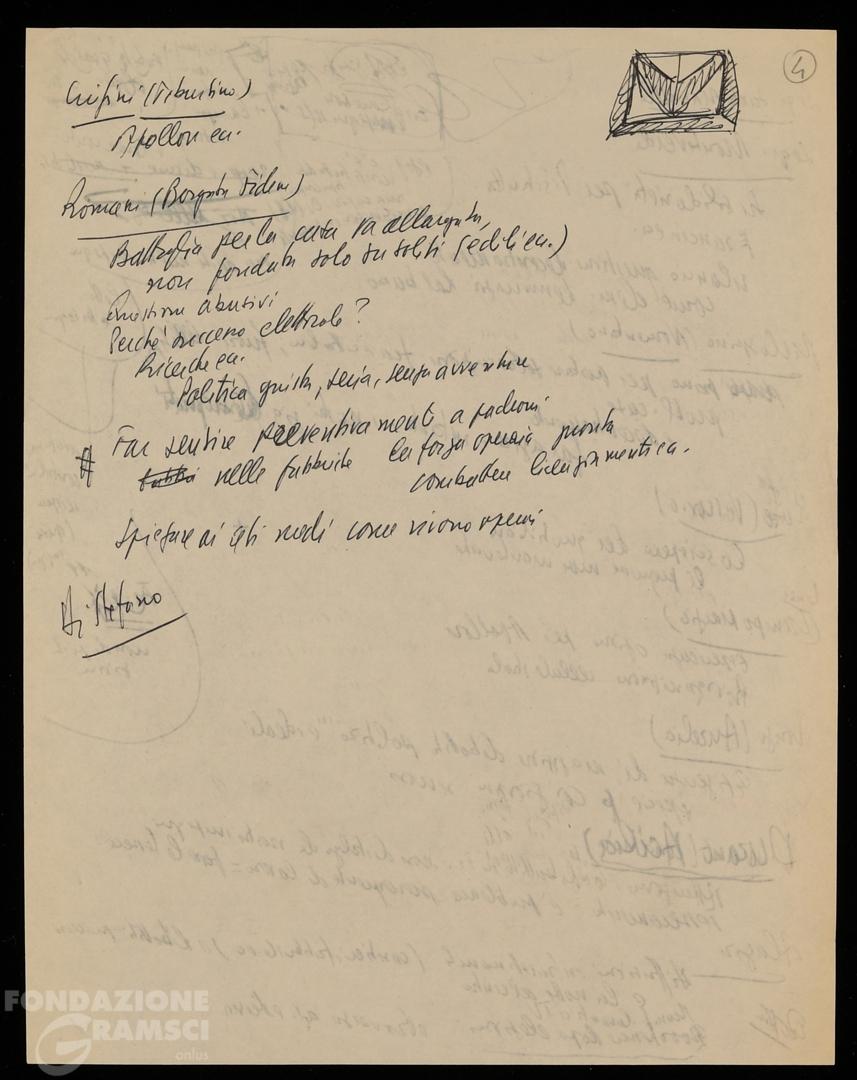 4
Crifini (Tiburtino)
Apollon ecc.
Romani (Borgata Fidene)
Battaglia per la casa va allargata,
non fondata solo su soliti (edili ecc.)
Questione abusivi
Perché successo elettorale?
Ricerche ecc.
Politica giusta, seria, senza avventure
# Far sentire preventivamente a padroni
nelle fabbriche la forza operaia pronta
combattere licenziamenti ecc.
Spiegare ai ceti medi come vivono operai
Di Stefano
FONDAZIONE
GRAMSCI
onlus